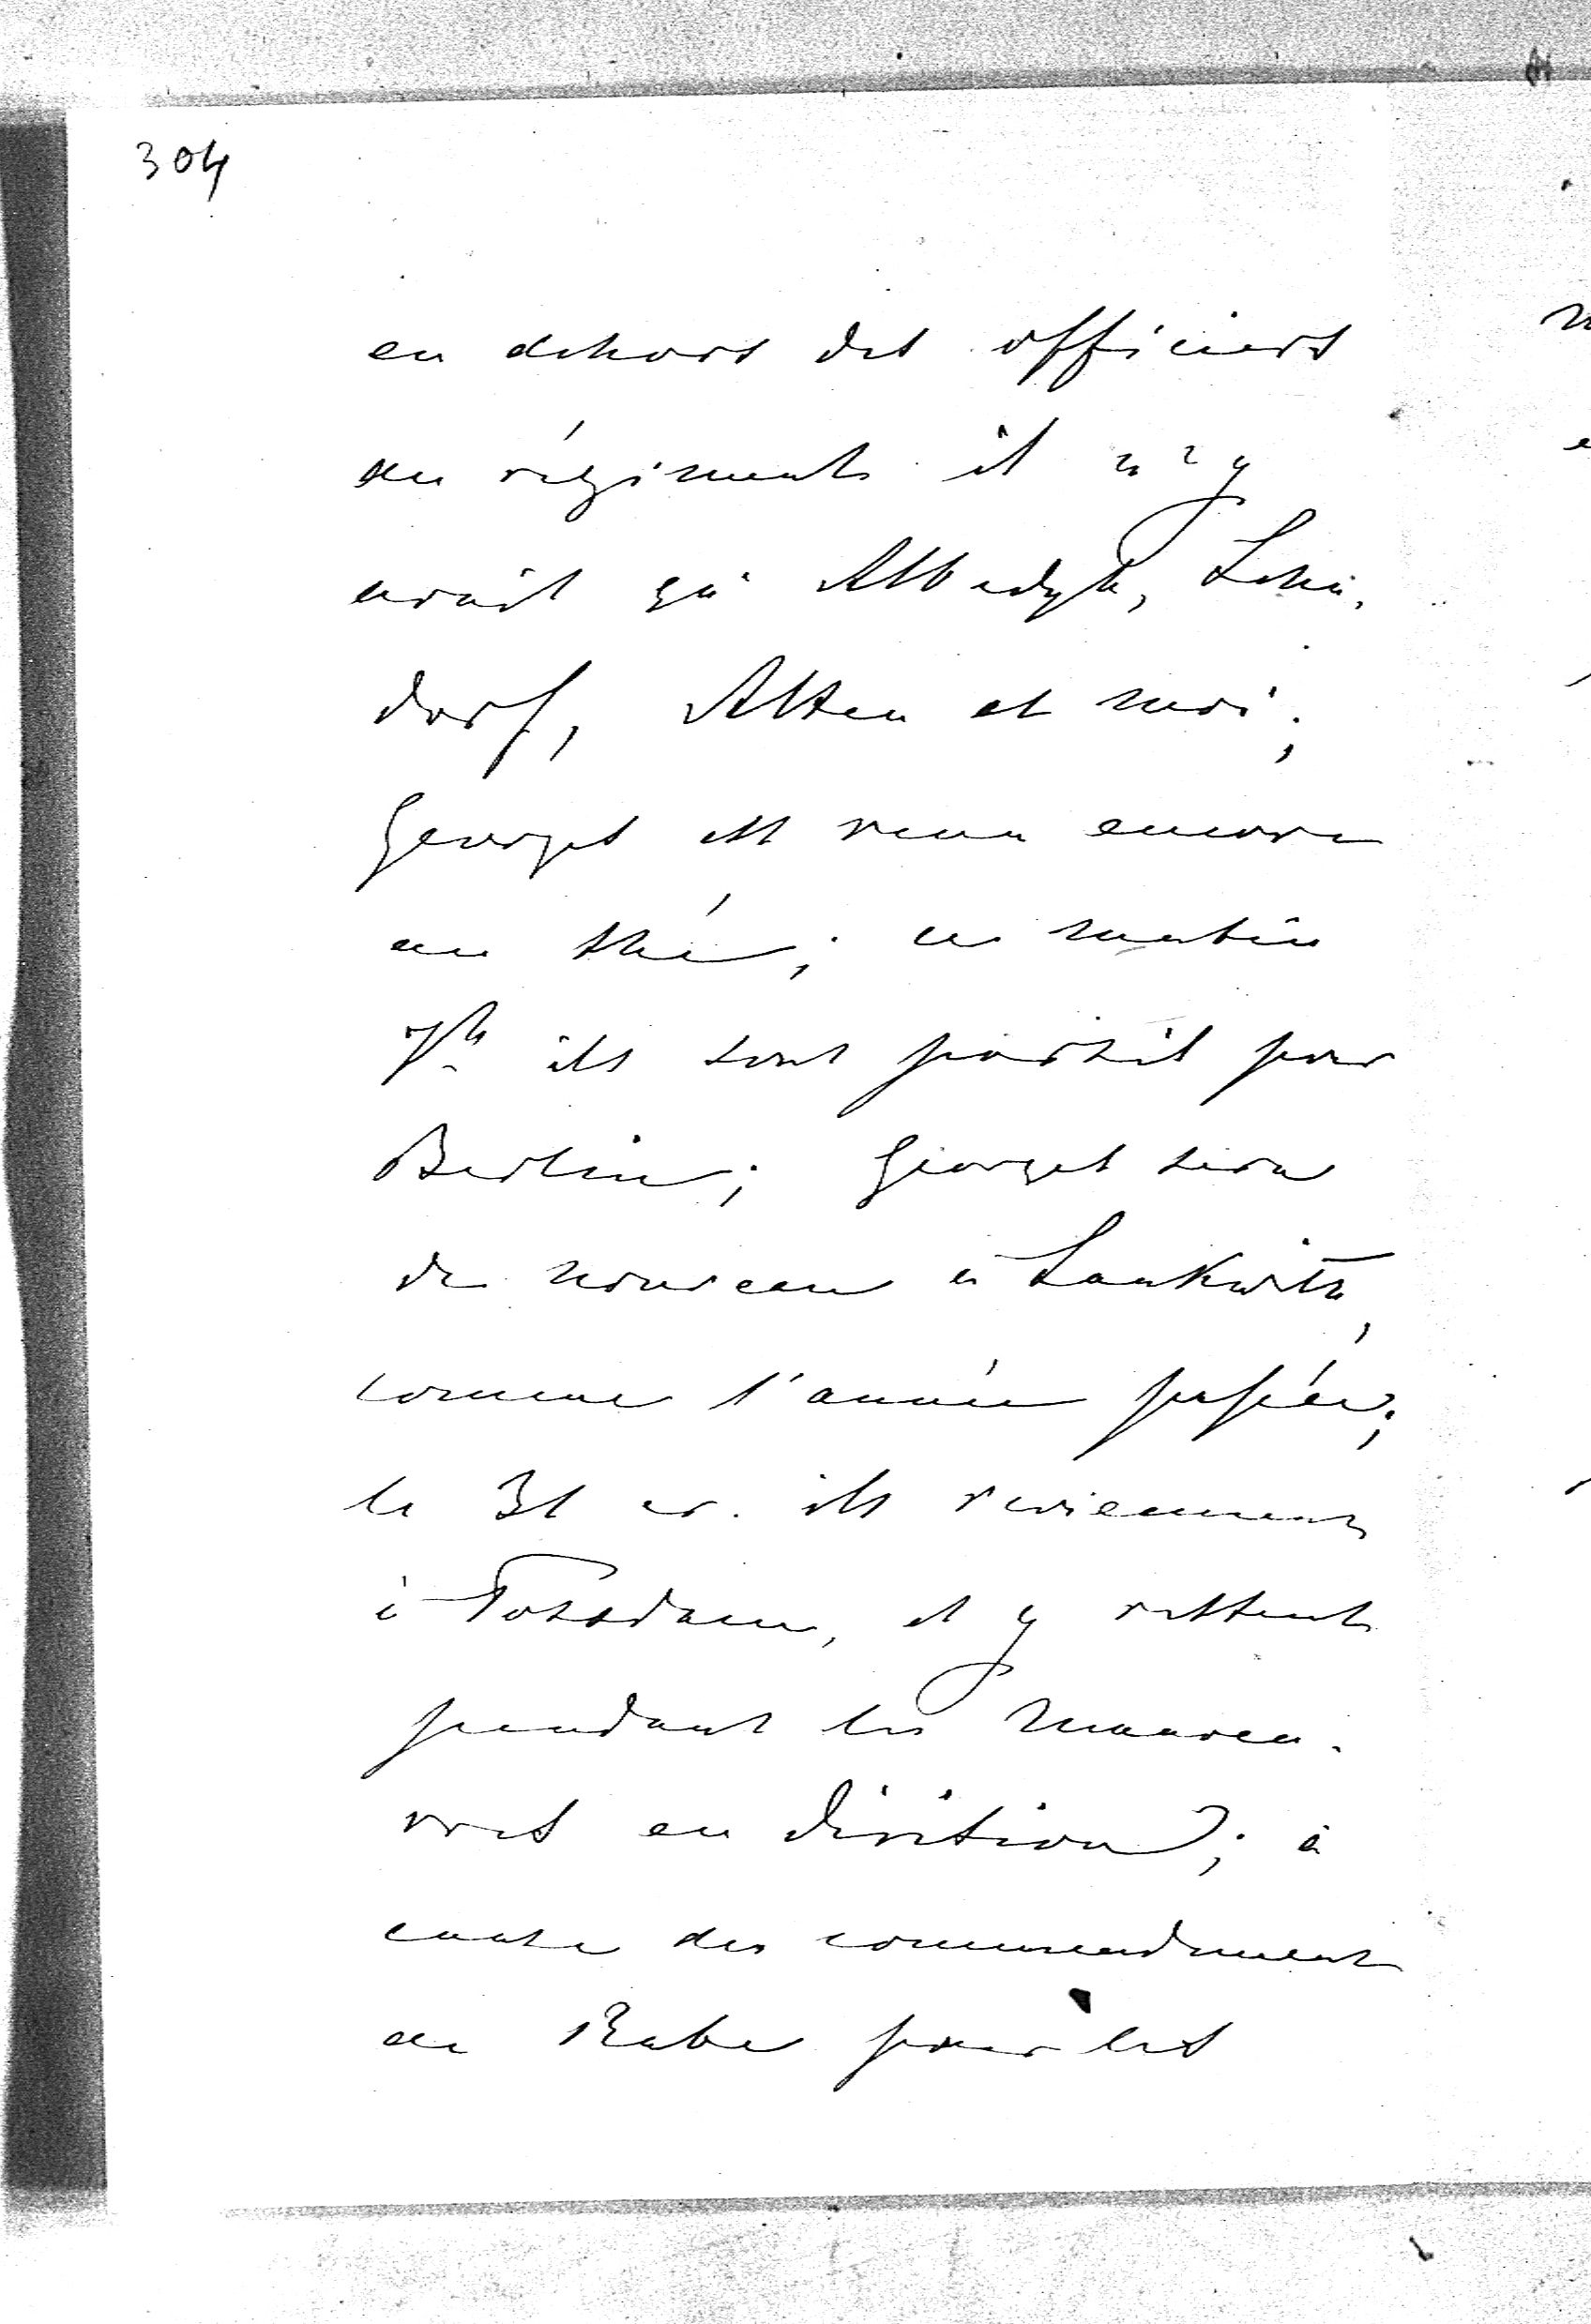 304
en dehors des officiers
du régiment il n'y
avait qu' Albedyll, Lehn-
dorf, Alten et moi;
Georges est venu encore
au thé; ce matin
7h ils sont partis pour
Berlin; Georges sera
de nouveau à Lankwitz,
comme l'année passée;
le 31 cr. ils reviennent
à Potsdam, et y restent
pendant les manoeu-
vres en division; à
cause du commendement
de Rabe pour les